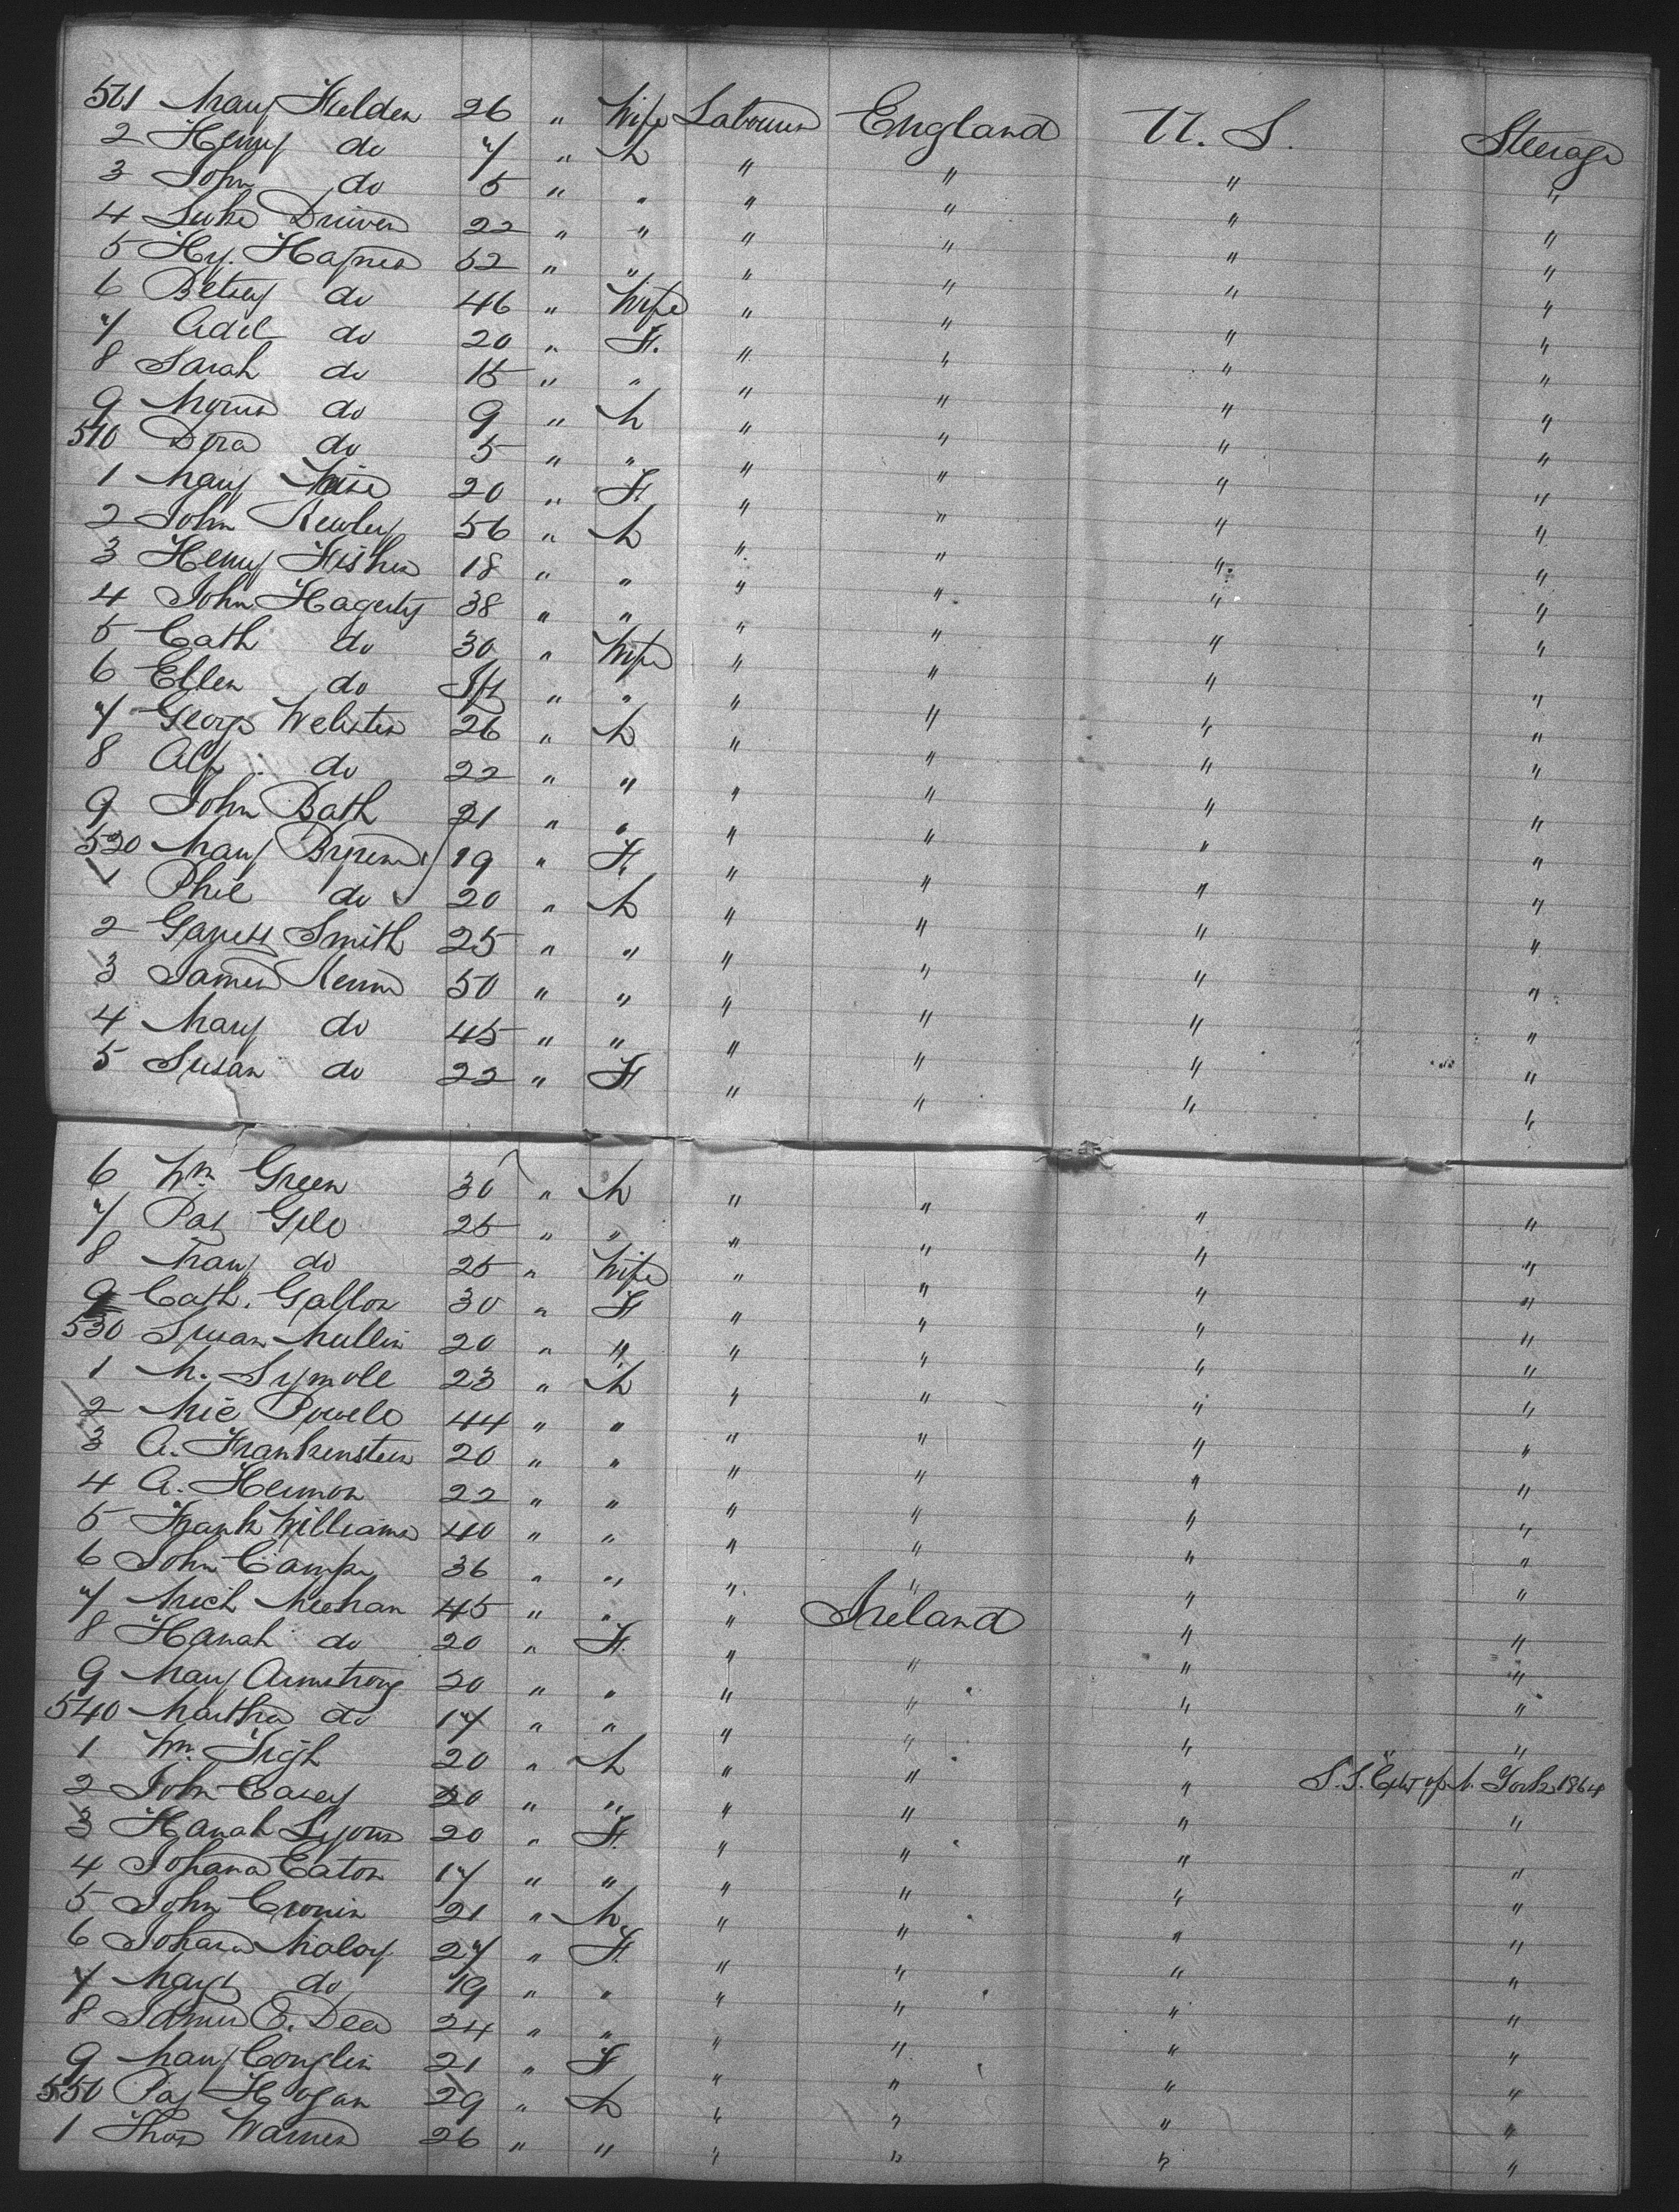 501 Mary Fielden 26 " Wife Labourer England U. S. Steerage
2 Henry do 7 " M " " " "
3 John do 5 " " " " " "
4 Luke Driver 22 " " " " " "
5 Hy. Haynes 52 " " " " " "
6 Betsey do 46 " Wife " " " "
7 Adel do 20 " F. " " " "
8 Sarah do 15 " " " " " "
9 do 9 " M " " " "
510 Dora do 5 " " " " " "
1 Mary Wise 20 " F. " " " "
2 John Rewley 56 " M " " " "
3 Henry Fisher 18 " " " " " "
4 John Hagerty 38 " " " " " "
5 Cath do 30 " Wife " " " "
6 Ellen do Inft " " " " " "
7 George Webster 26 " M " " " "
8 Alf. do 22 " " " " " "
9 John Bath 21 " " " " " "
520 Mary 19 " F. " " " "
1 Phil do 20 " M " " " "
2 Garrett Smith 25 " " " " " "
3 James 50 " " " " " "
4 Mary do 45 " " " " " "
5 Susan do 22 " F " " " "
6 Wm. Green 30 " M " " " "
7 Pat 25 " " " " " "
8 Mary do 25 " Wife " " " "
9 Cath. Gallon 30 " F " " " "
530 Susan Mullin 20 " " " " " "
1 M. Symole 23 " M " " " "
2 Mic Powell 44 " " " " " "
3 A. Frankenstein 20 " " " " " "
4 A. Hermon 22 " " " " " "
5 Frank Williams 40 " " " " " "
6 John Camp 36 " " " " " "
7 Mich Meehan 45 " " " Ireland " "
8 Hanah do 20 " F. " " " "
9 Mary Armstrong 20 " " " " " "
540 Martha do 17 " " " " " "
1 Wm. Tigh 20 " M " " " "
2 John Casey 20 " " " " " S.S. City of N. York 1864
3 Hanah Lyons 20 " F. " " " "
4 Johana Eaton 17 " " " " " "
5 John Cronin 21 " M " " " "
6 Johana Maloy 27 " F. " " " "
7 Mary do 19 " " " " " "
8 James O. Dea 24 " " " " " "
9 Mary Conglin 21 " F " " " "
550 Pat Hogan 29 " M " " " "
1 Thos Warner 26 " " " " " "